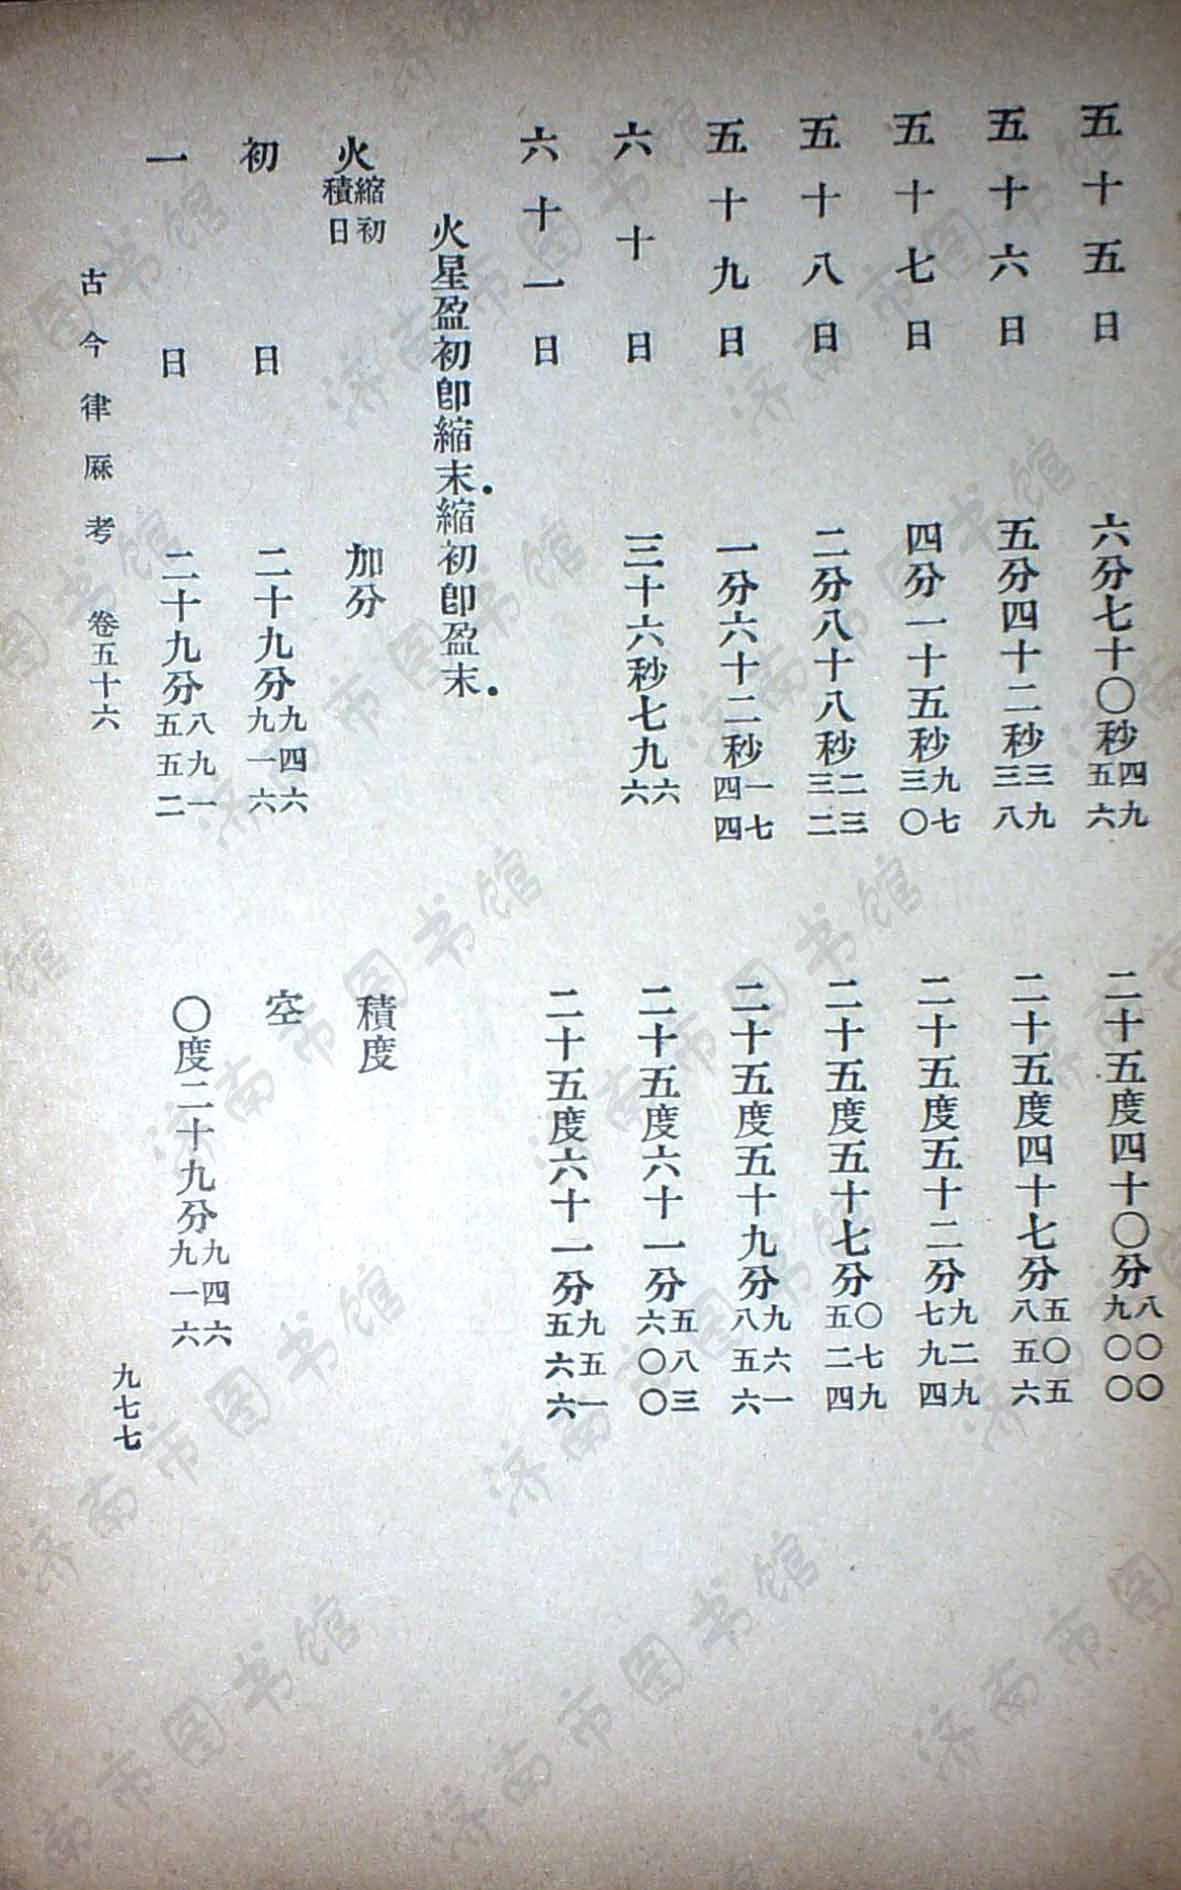 五十五日 六分七十〇秒四九五六 二十五度四十〇分八〇〇九〇〇
五十六日 五分四十二秒三九三八 二十五度四十七分五〇五八五六
五十七日 四分一十五秒九七三〇 二十五度五十二分九二九七九四
五十八日 二分八十八秒二三三二 二十五度五十七分〇七九五二四
五十九日 一分六十二秒一七四四 二十五度五十九分九六一八五六
六十日 三十六秒七九六六 二十五度六十一分五八三六〇〇
六十一日 二十五度六十一分九五一五六六
火星盈初卽縮末．縮初卽盈末．
火縮初積日 加分 積度
初日 二十九分九四六九一六 空
一日 二十九分八九一五五二 〇度二十九分九四六九一六
古今律厤考 卷五十六 九七七
济南市图书馆